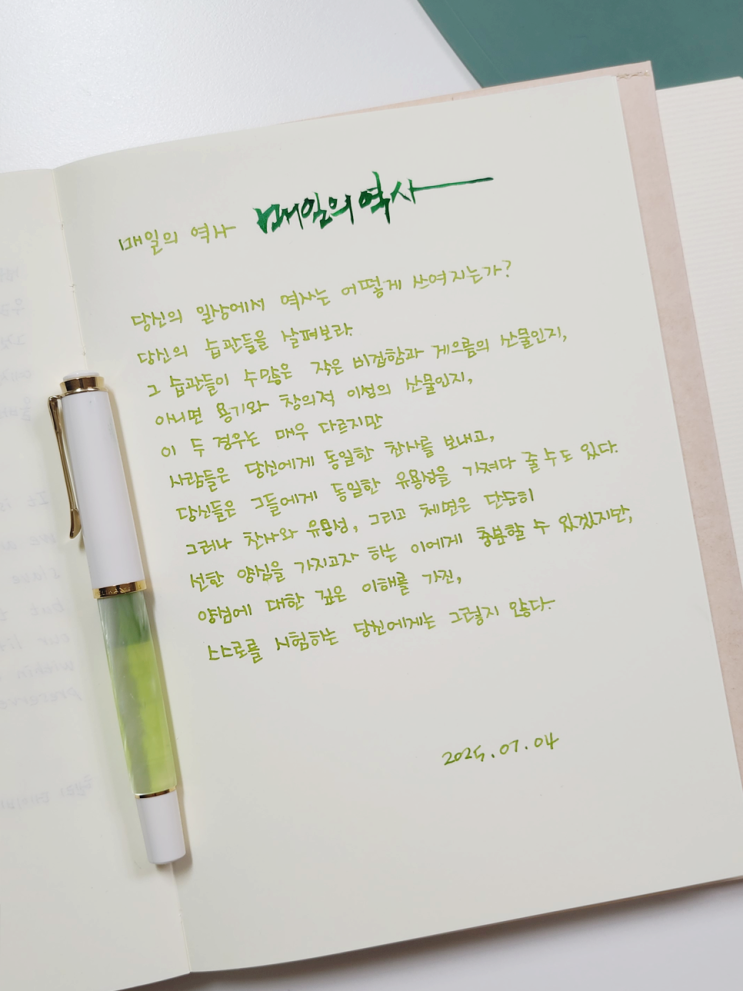 매일의 역사 매일의 역사
당신의 일상에서 역사는 어떻게 쓰여지는가?
당신의 습관들을 살펴보라.
그 습관들이 수많은 작은 비겁함과 게으름의 산물인지,
아니면 용기와 창의적 이성의 산물인지,
이 두 경우는 매우 다르지만
사람들은 당신에게 동일한 찬사를 보내고,
당신들은 그들에게 동일한 유용성을 가져다 줄 수도 있다.
그러나 찬사와 유용성, 그리고 체면은 단순히
선한 양심을 가지고자 하는 이에게 충분할 수 있겠지만,
양심에 대한 깊은 이해를 가진,
스스로를 시험하는 당신에게는 그렇지 않다.
2025.07.04